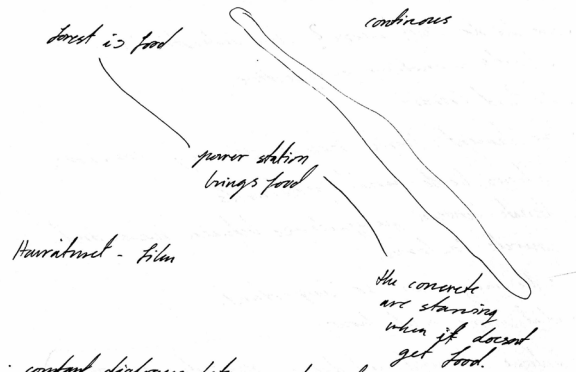 continous
forest is food
power station
brings food
- film
the concrete
are starving
when it doesnt
get food.
constant dialogues